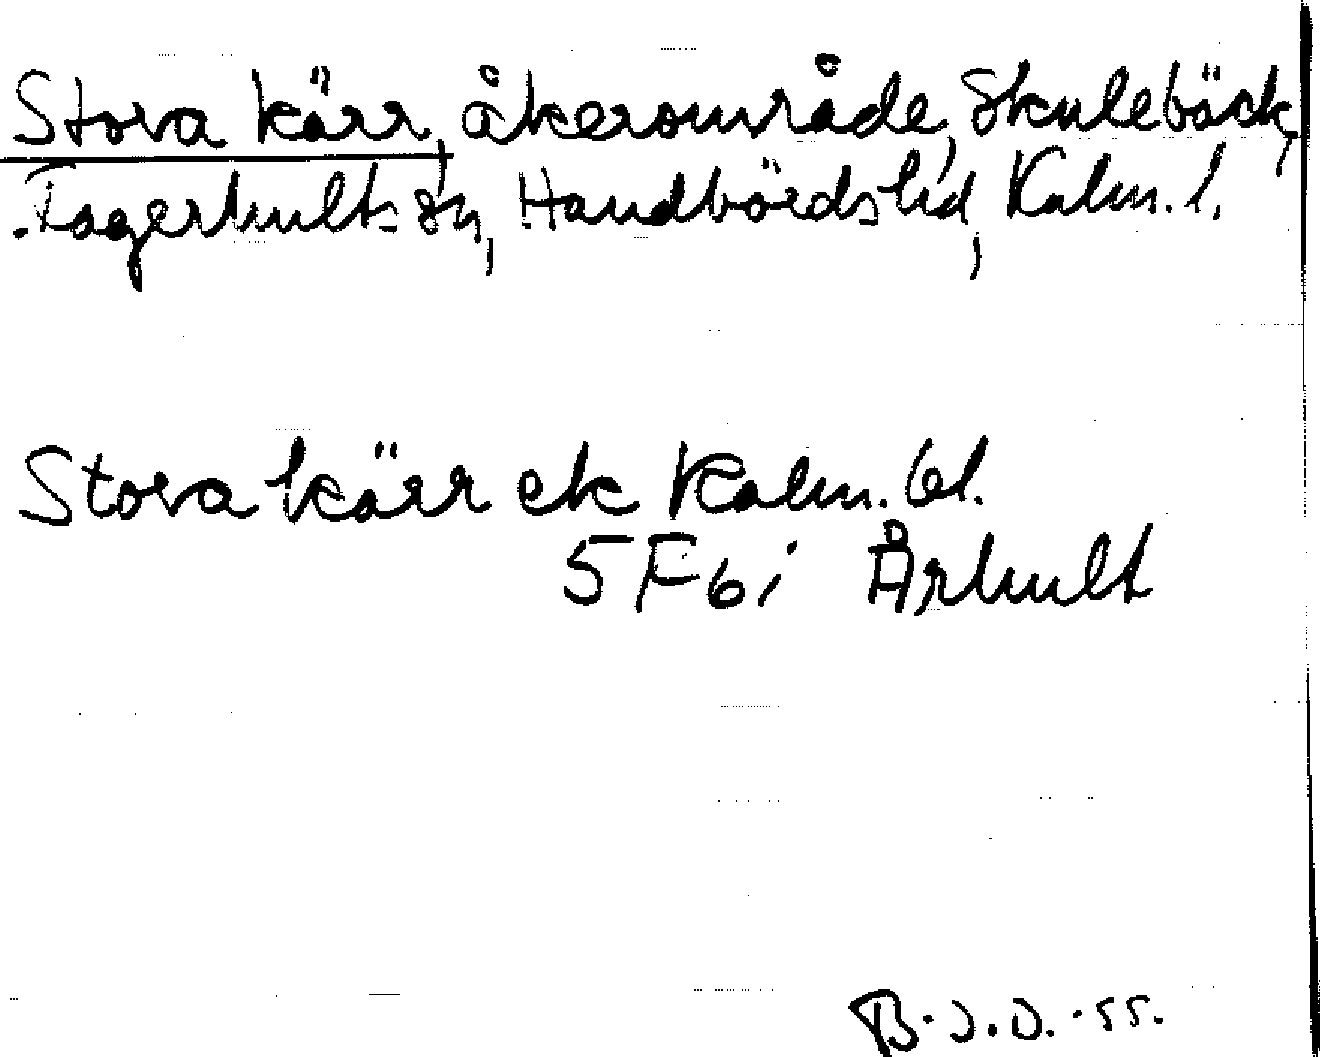 Stora kärr, åkerområde, Skulebäck,
Fagerhults sn, Handbörds hd, Kalm. l.
Stora kärr ek Kalm. bl.
5 F 6 i Århult
B. J. D. -55.